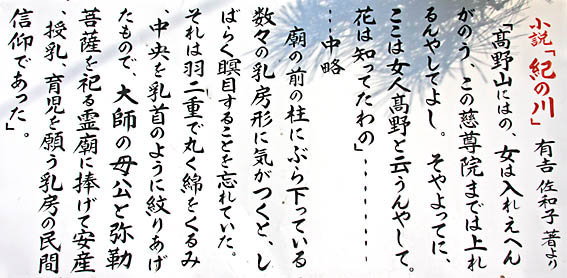 小説「紀の川」 有吉 佐和子 著より
「髙野山にはの、女は入れえへん
がのう、この慈尊院までは上れ
るんやしてよし。そやよってに、
ここは女人髙野と云うんやして。
花は知ってたわの」‥‥‥‥‥
‥‥中略
廟の前の柱にぶら下っている
数々の乳房形に気がつくと、し
ばらく瞑目することを忘れていた。
それは羽二重で丸く綿をくるみ
、中央を乳首のように絞りあげ
たもので、大師の母公と弥勒
菩薩を祀る霊廟に捧げて安産
、授乳、育児を願う乳房の民間
信仰であった」。